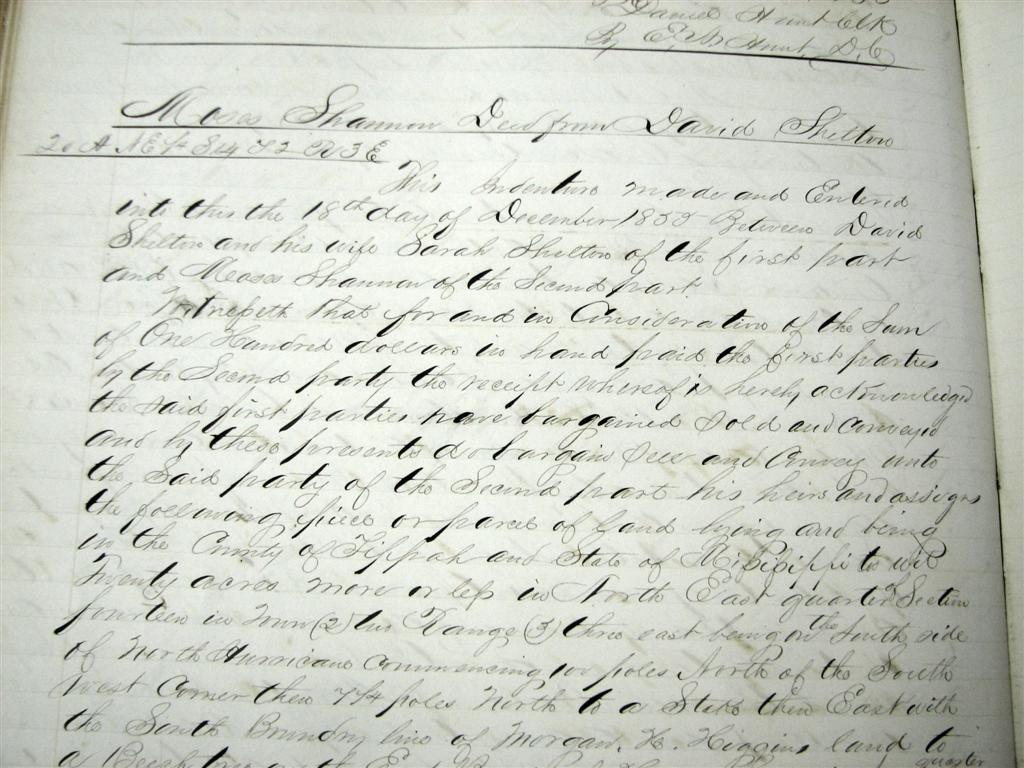 Daniel Hunt Clk
By E. W. Hunt, D.C
Moses Shannon Deed from David Shelton
20 A N E ¼ S 14 T 2 R 3 E
This Indenture made and Entered
into this the 18th day of December 1855 Between David
Shelton and his wife Sarah Shelton of the first part
and Moses Shannon of the Second part.
Witnesseth that for and in Consideration of the Sum
of One Hundred dollars in hand paid the first parties
by the Second party the receipt whereof is hereby acknowledged
the said first parties have bargained sold and conveyed
and by these presents do bargain sell and Convey unto
the said party of the Second part his heirs and assigns
the following piece or parcel of land lying and being
in the County of Tippah and State of Missippi to wit
Twenty acres more or less in North East quarter of Section
fourteen in Town (2) two Range (3) three east being on the South side
of North Hurricane commencing 100 poles North of the South
West Corner then 7¾ poles North to a Stake then East with
the South Boundry line of Morgan. H. Higgins land to
a Beech tree on the quarter